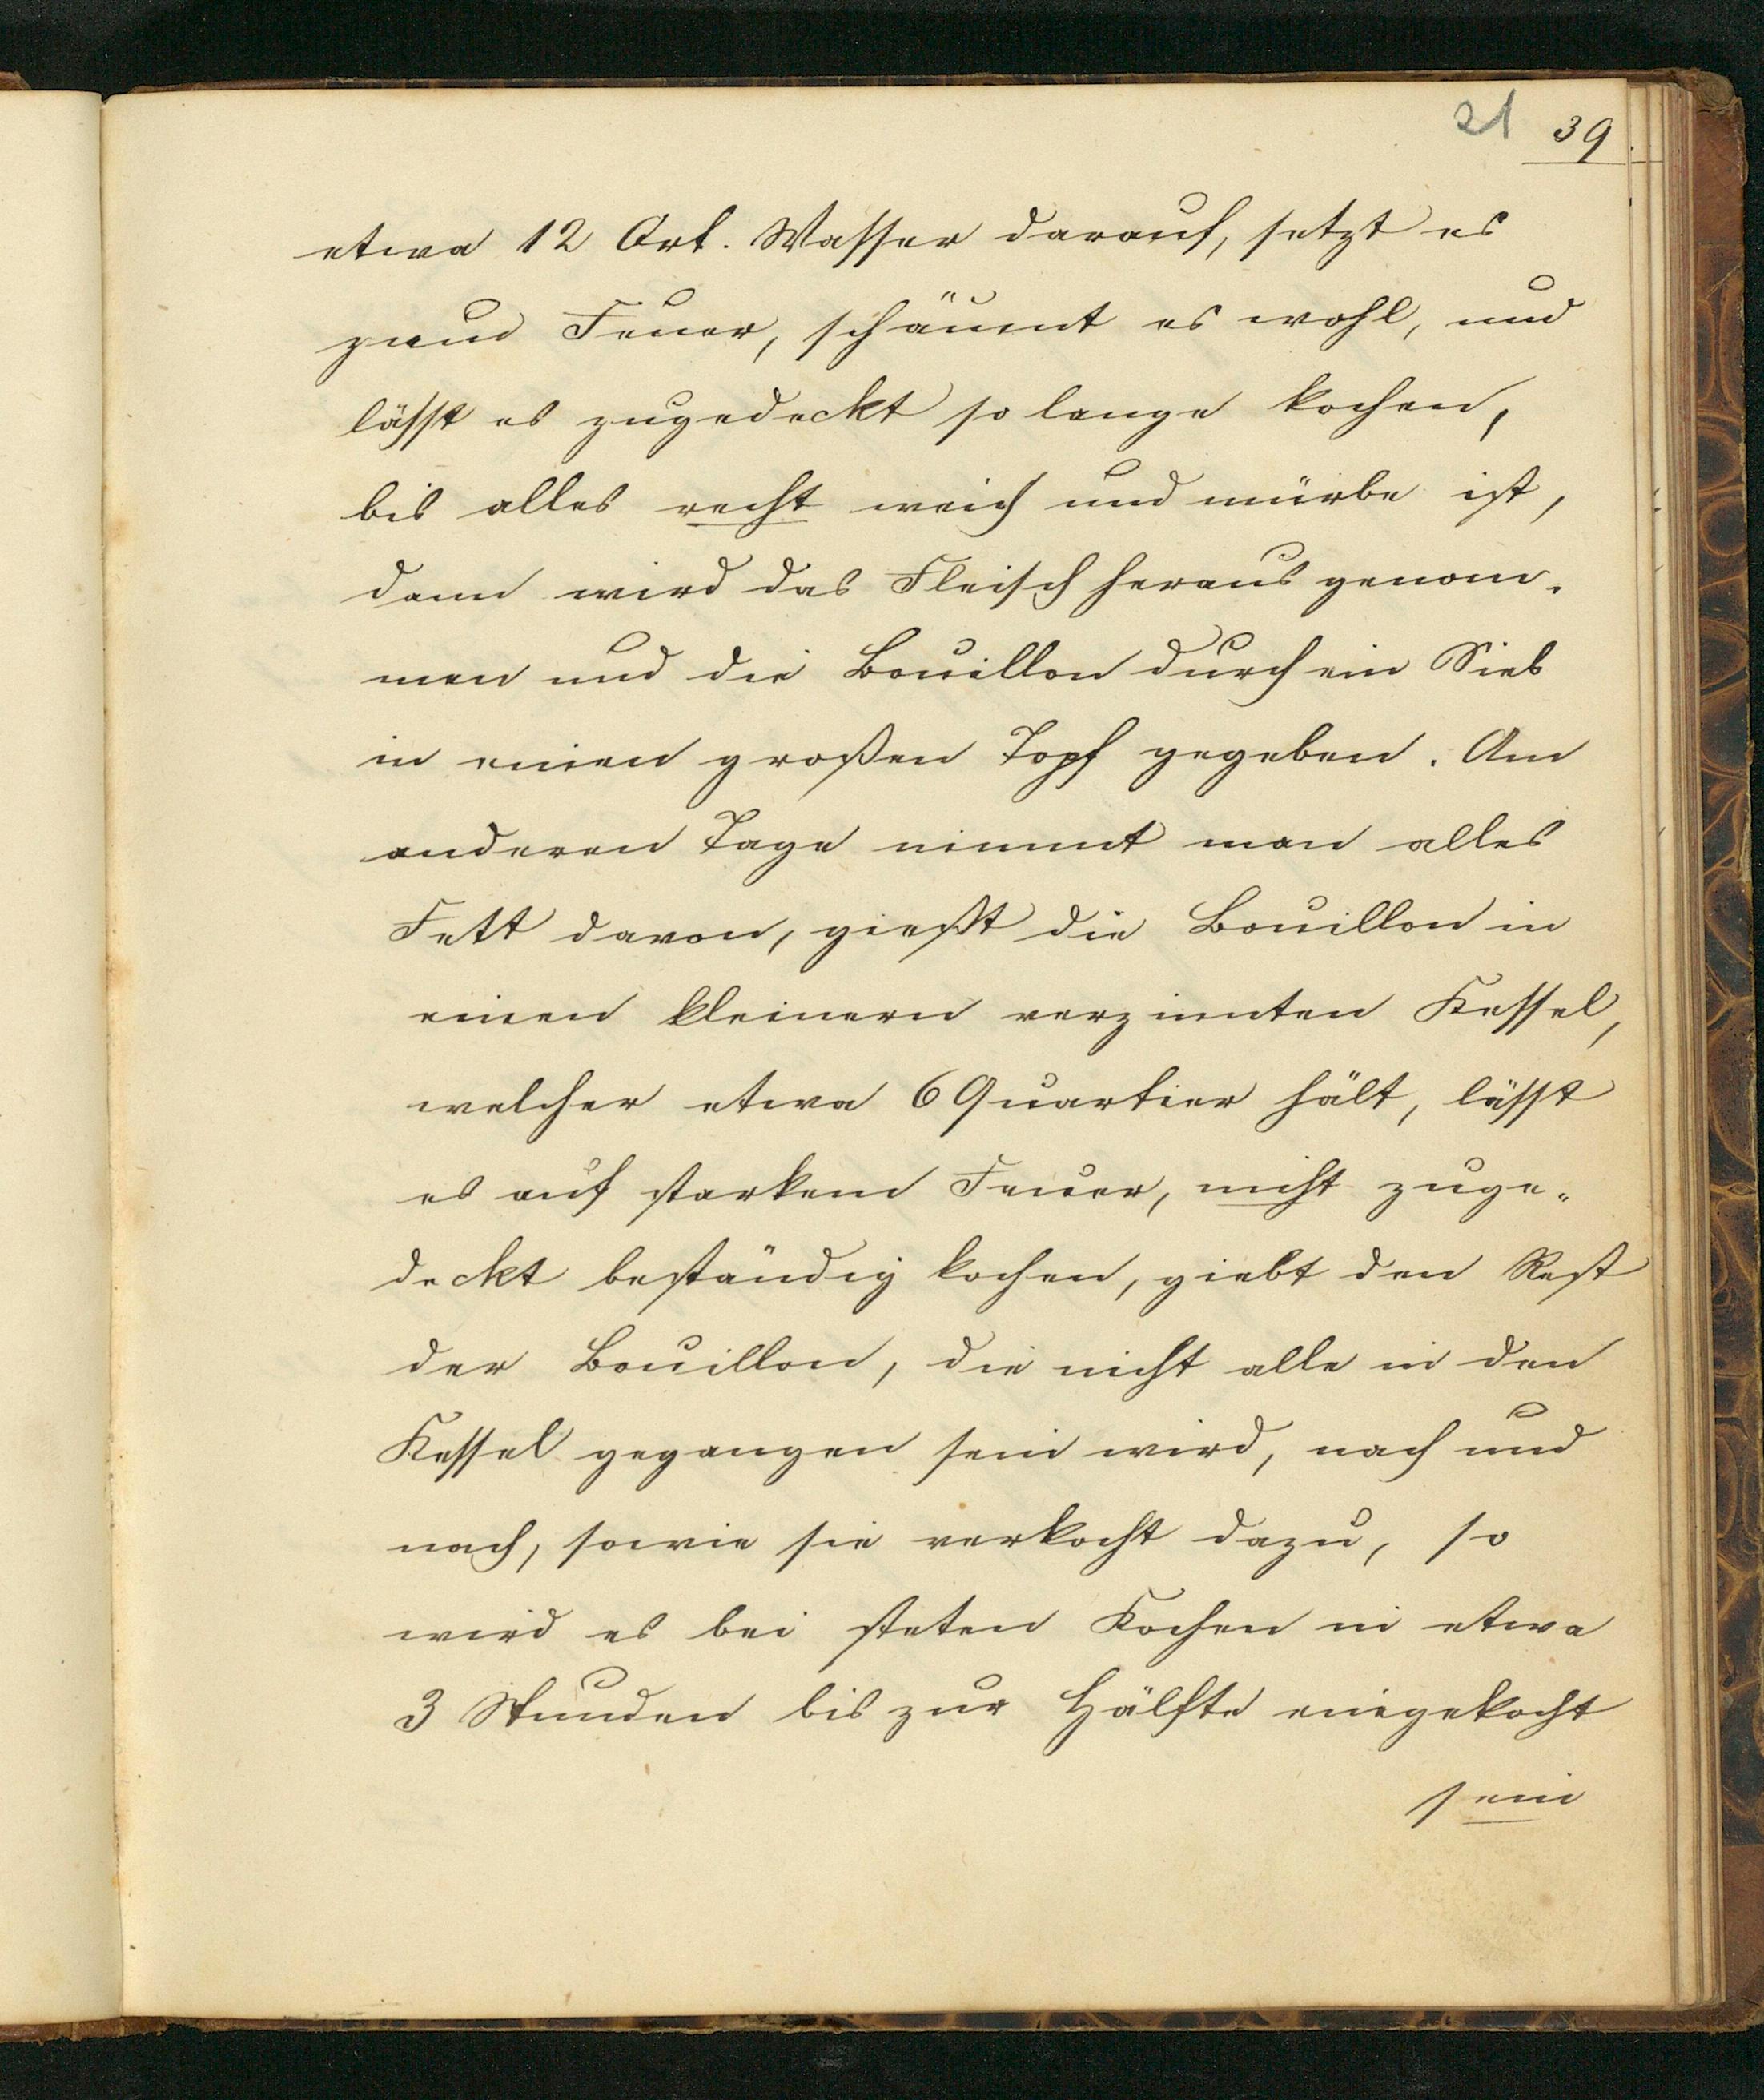 21 39
etwa 12 Ort. Wasser darauf, setzt es
zum Feuer, schäumt es wohl, und
lässt es zugedeckt so lange kochen,
bis alles recht weich und mürbe ist,
dann wird das Fleisch heraus genom-
men und die Bouillon durch ein Sieb
in einen großen Topf gegeben. Am
anderen Tage nimmt man alles
Fett davon, gießt die Bouillon in
einen kleinern verzinnten Kessel,
welcher etwa 6 Quartier hält, lässt
es auf starkem Feuer, nicht zuge-
deckt beständig kochen, giebt den Rest
der Bouillon, die nicht alle in den
Kessel gegangen sein wird, nach und
nach, sowie sie verkocht dazu, so
wird es bei steten Kochen in etwa
3 Stunden bis zur Hälfte eingekocht
sein